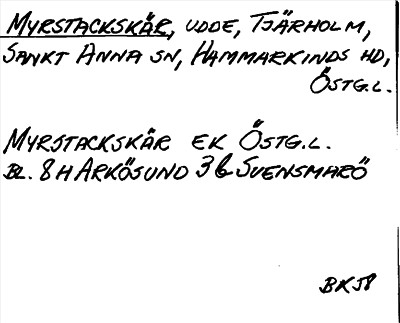 MYRSTACKSKÄR, UDDE, TJÄRHOLM,
SANKT ANNA SN, HAMMARKINDS HD,
ÖSTG.L.
MYRSTACKSKÄR EK ÖSTG.L.
BL. 8 H ARKÖSUND 3 b SVENSMARÖ
BK58